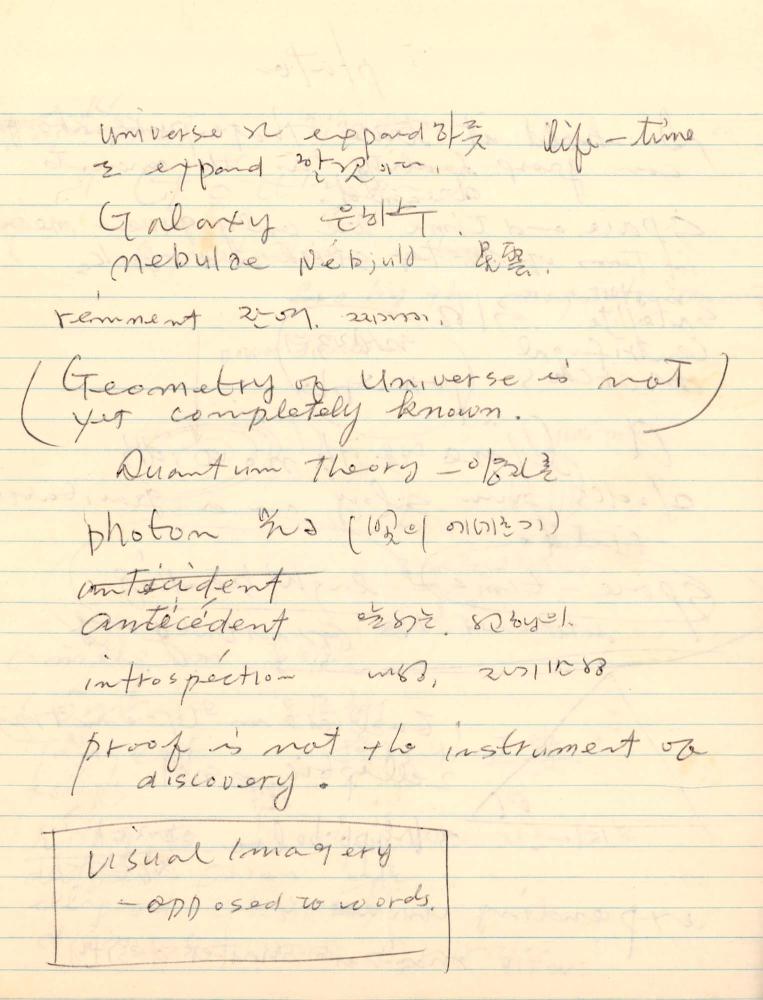 universe가 expand하듯 life-time
도 expand 할것이다.
Galaxy 은하수.
Nebulae Nébjulə 星雲.
remnent 잔여.
(Geometry of Universe is not
yet completely known.)
Quantum Theory —
photon 광자 (빛의 에네르기)
anticident
antécédent 앞서는. 선행의.
introspéction 내성, 자기반성
proof is not the instrument of
discovery.
Visual Imagery
- opposed to words.